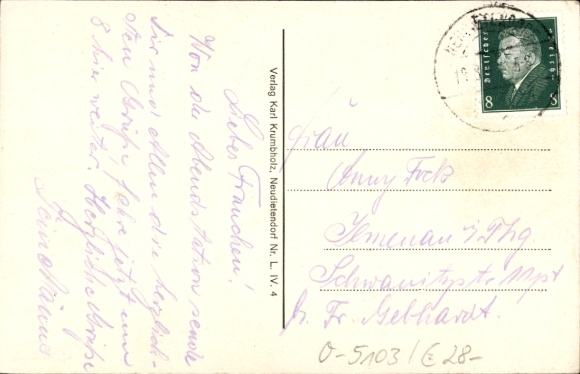 Liebes Frauchen!
Von der Abendstation sende
Dir und Allen die herzlich-
sten Grüße, fahre jetzt um
8 hier weiter. Herzliche Grüße
Dein
Verlag Karl Krumbholz, Neudietendorf Nr. L. IV. 4
Deutsches Reich
8 8
Frau
Anny Fock
Ilmenau i/Thg.
Schwanitzstr.
b. Fr. Gebhardt.
0-5103/E 28-